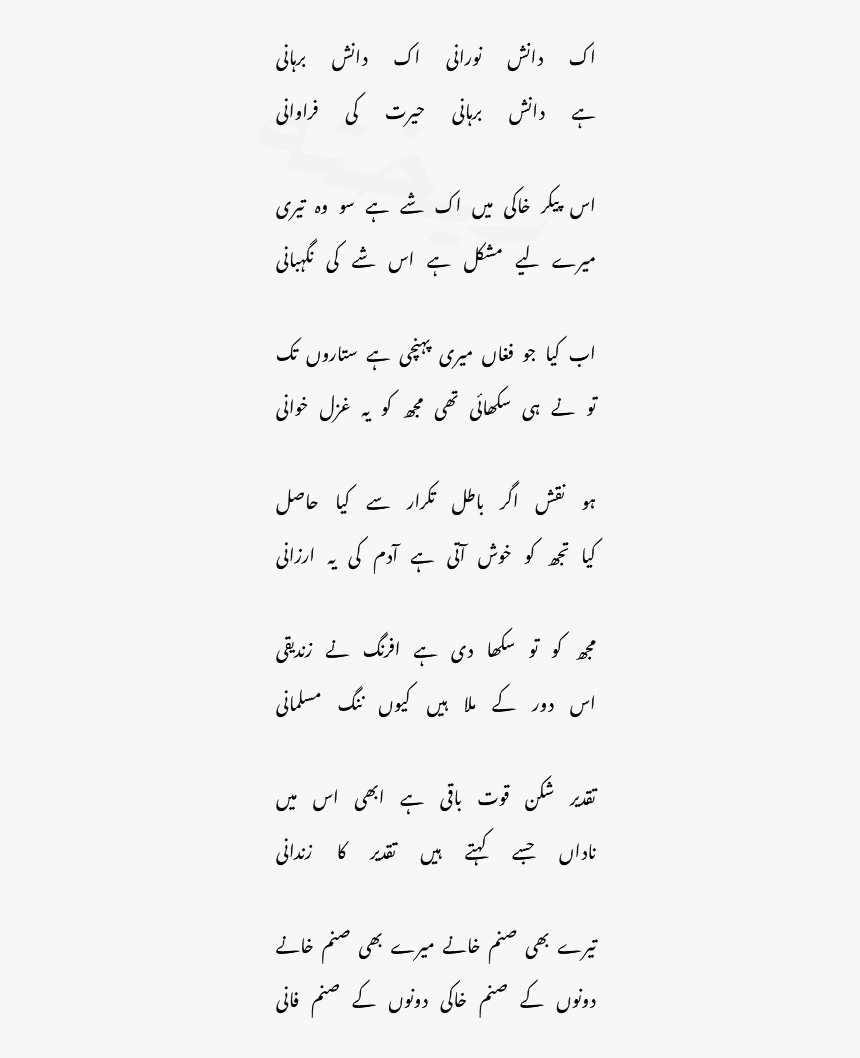 اک دانش نورانی اک دانش برہانی
ہے دانش برہانی حیرت کی فراوانی
اس پیکر خاکی میں اک شے ہے سو وہ تیری
میرے لیے مشکل ہے اس شے کی نگہبانی
اب کیا جو فغاں میری پہنچی ہے ستاروں تک
تو نے ہی سکھائی تھی مجھ کو یہ غزل خوانی
ہو نقش اگر باطل تکرار سے کیا حاصل
کیا تجھ کو خوش آتی ہے آدم کی یہ ارزانی
مجھ کو تو سکھا دی ہے افرنگ نے زندیقی
اس دور کے ملا ہیں کیوں ننگ مسلمانی
تقدیر شکن قوت باقی ہے ابھی اس میں
ناداں جسے کہتے ہیں تقدیر کا زندانی
تیرے بھی صنم خانے میرے بھی صنم خانے
دونوں کے صنم خاکی دونوں کے صنم فانی